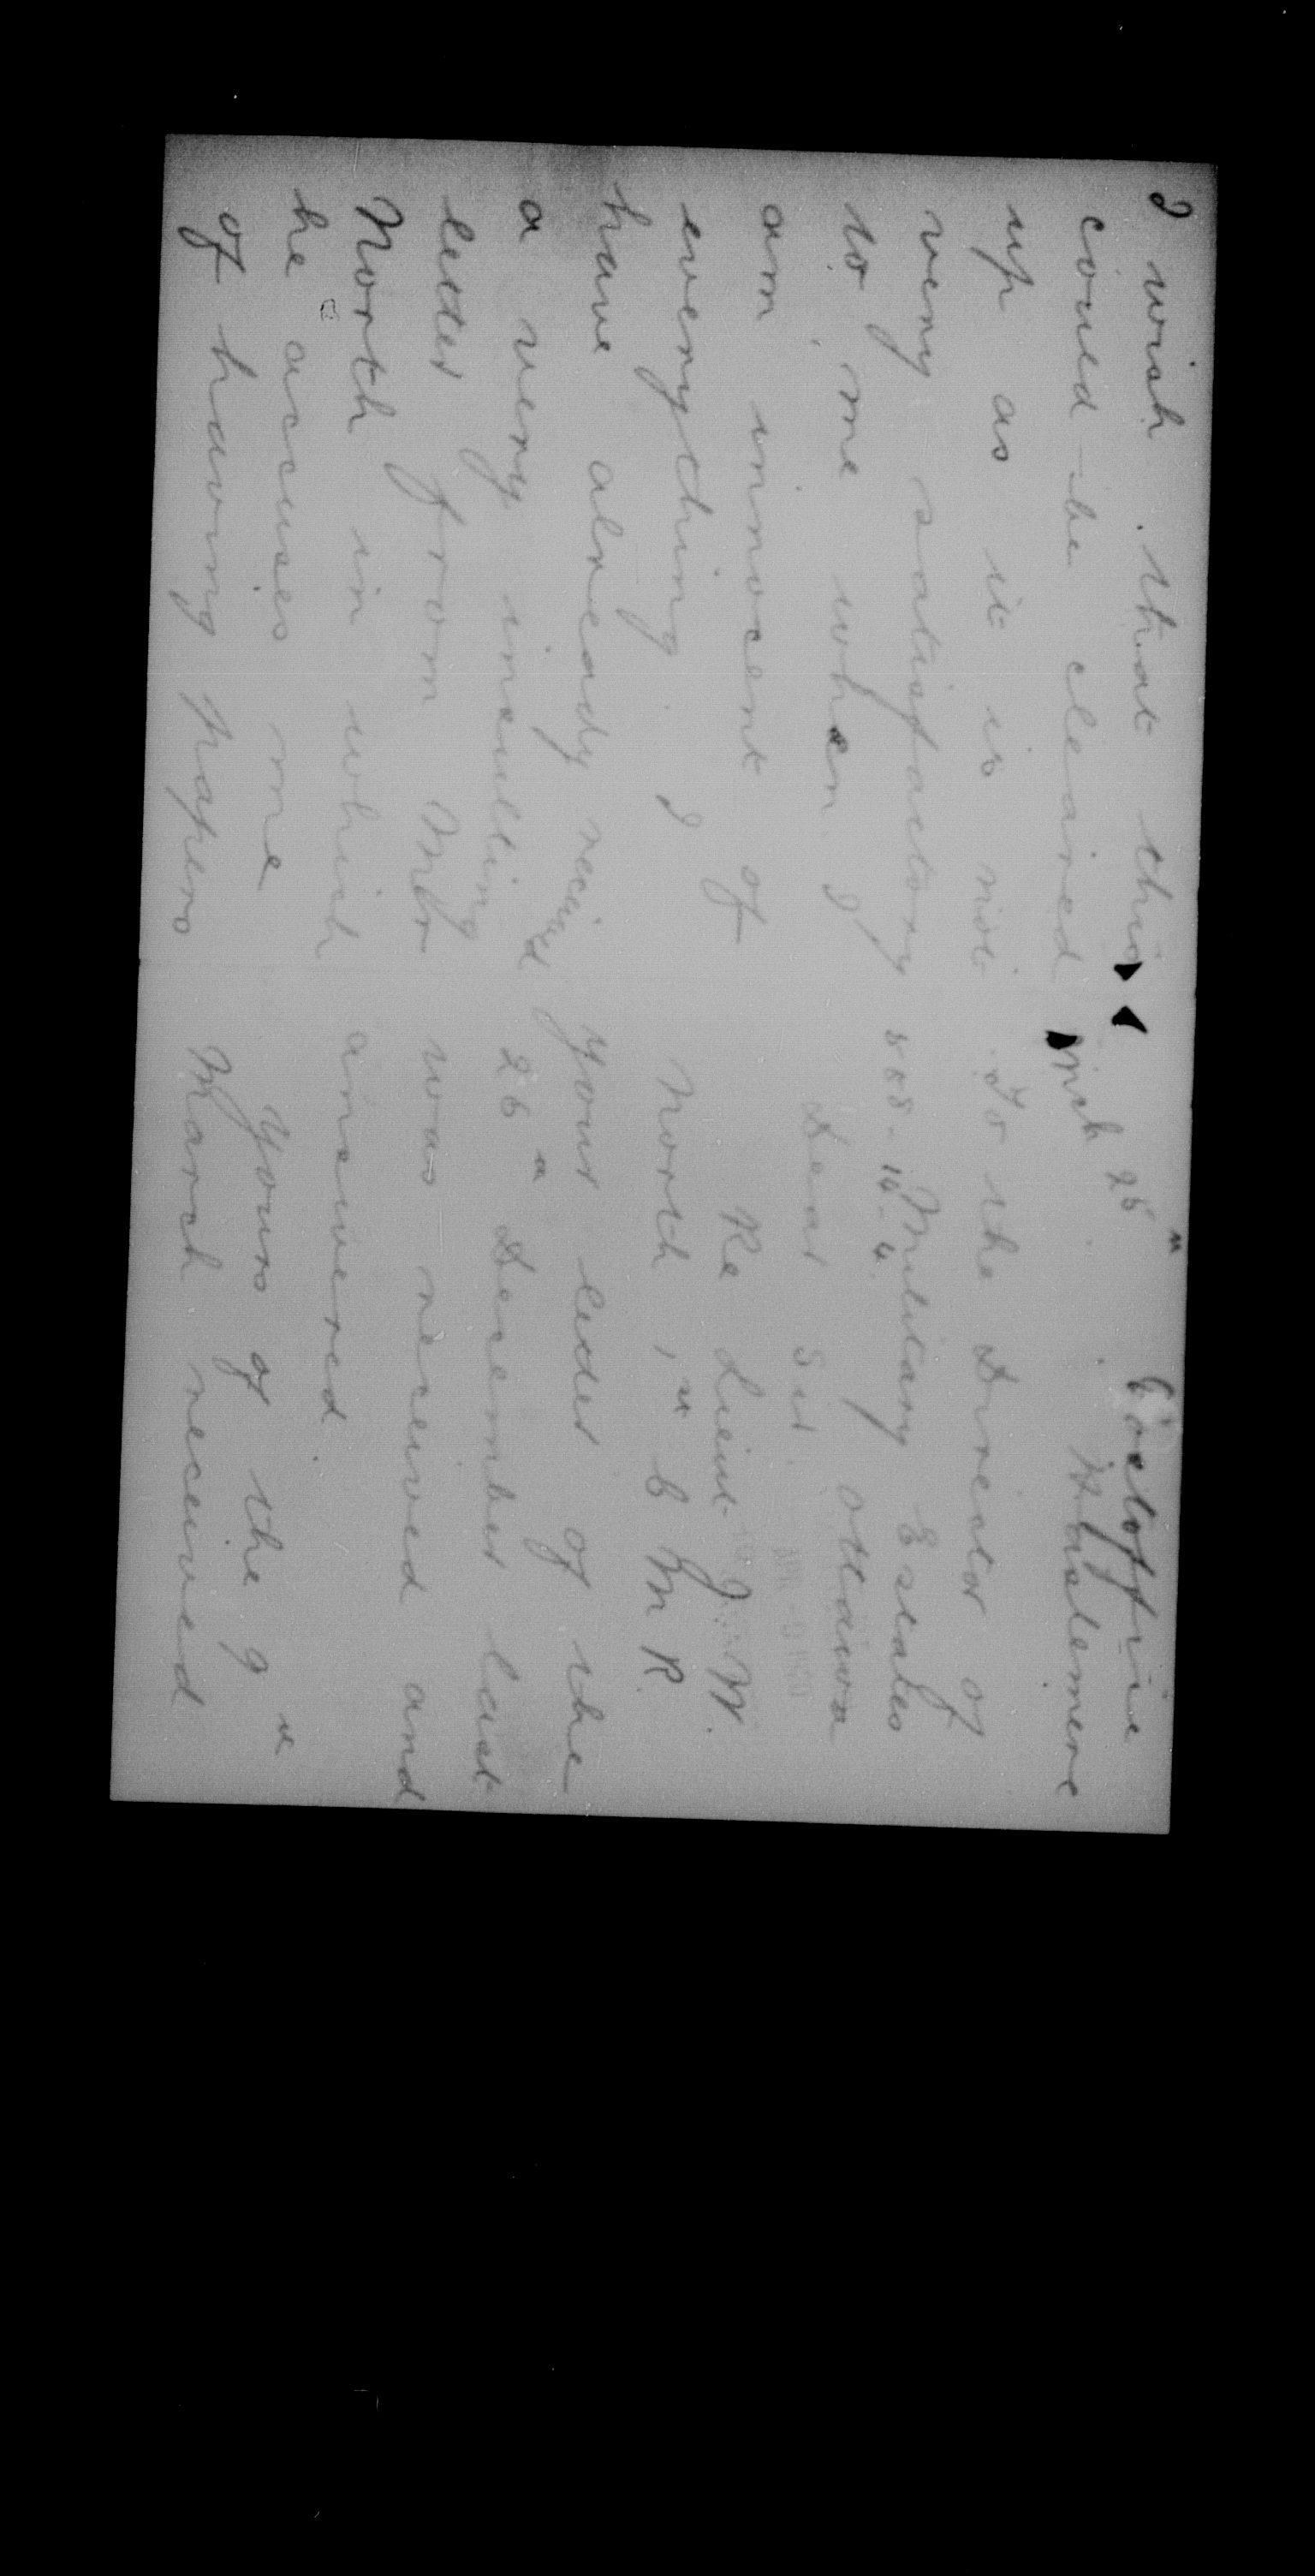 I wish that this
could be cleared
up as it is not
very satisfactory
to me when I
am innocent of
everything. I
have already received
a very insulting
letter from Mr
North in which
he accuses me
of having papers
Mch 26th
Haslemere
To the Director of
Military Estates
888-14-4. Ottawa
Dear Sir
Re Lieut J. W.
North, 1st C M R
your letter of the
26th December last
was received and
answered.
Yours of the 9th
March received